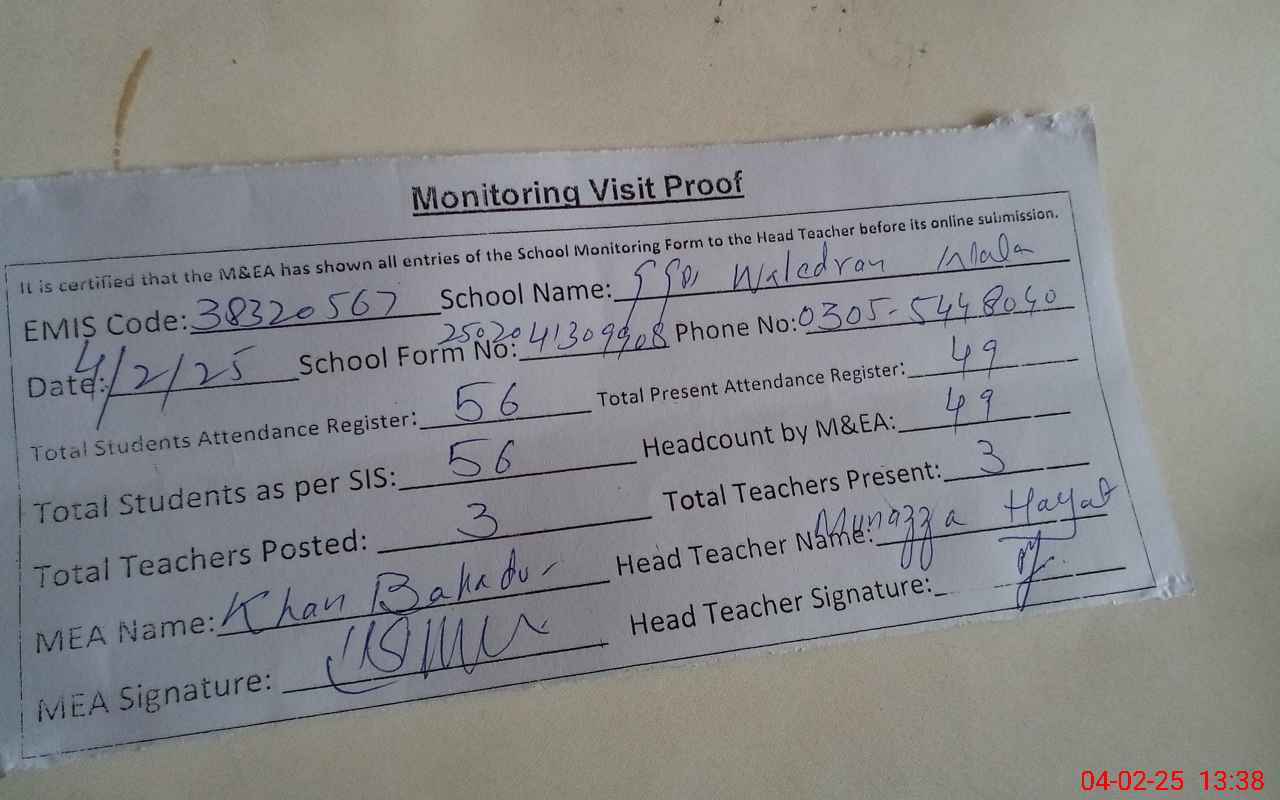 Monitoring Visit Proof
It is certified that the M&EA has shown all entries of the School Monitoring Form to the Head Teacher before its online submission.
EMIS Code: 38320567 School Name: Waledran Wala
Date: 4/2/25 School Form No: 2502041309908 Phone No: 0305-5448040
Total Students Attendance Register: 56 Total Present Attendance Register: 49
Total Students as per SIS: 56 Headcount by M&EA: 49
Total Teachers Posted: 3 Total Teachers Present: 3
MEA Name: Khan Bahadur Head Teacher Name: Munazza Hayat
MEA Signature: Head Teacher Signature:
04-02-25 13:38